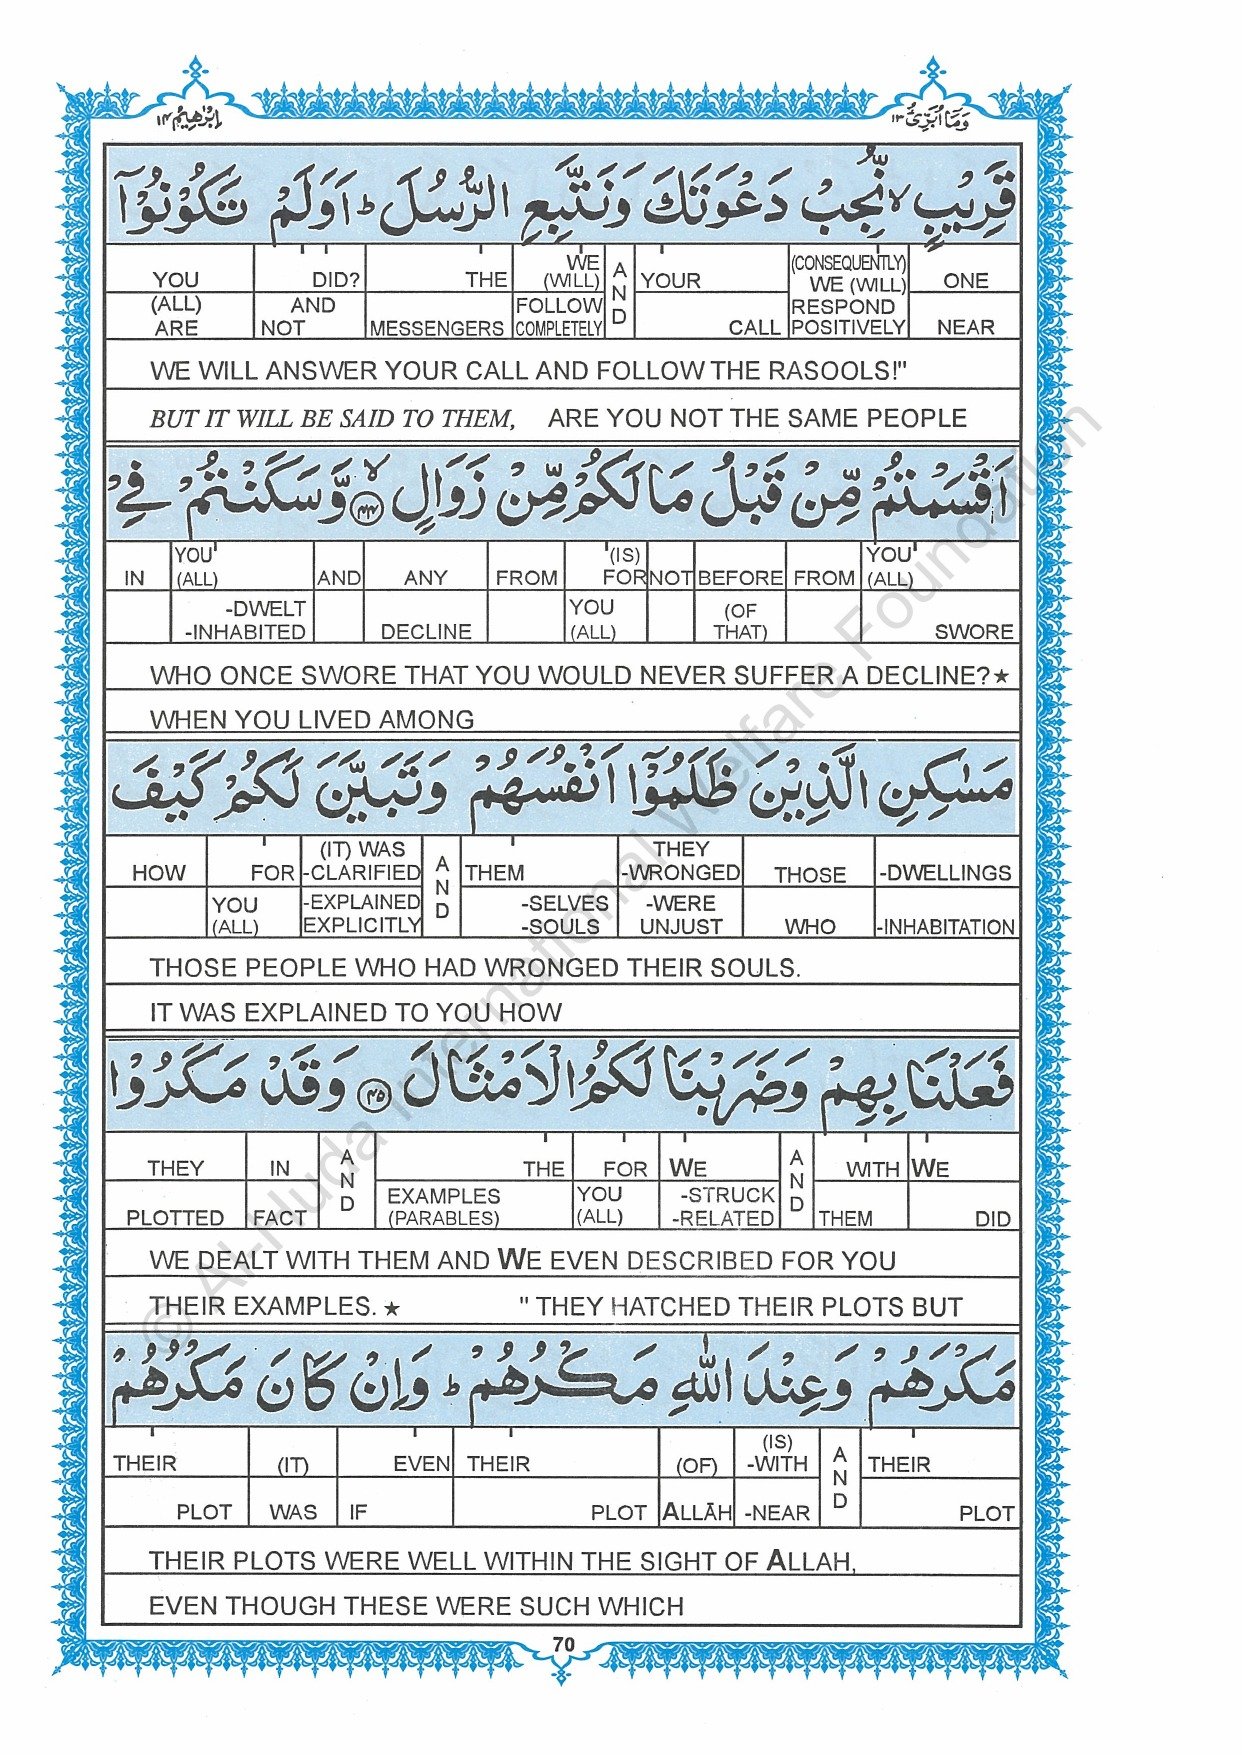 اِبْرٰهِيْمُ ۱۴
وَمَاۤ اُبَرِّئُ ۱۳
قَرِيْبٍ ۙ نُّجِبْ دَعْوَتَكَ وَنَتَّبِعِ الرُّسُلَ ؕ اَوَلَمْ تَكُوْنُوْۤا
YOU DID? THE WE (WILL) AND YOUR (CONSEQUENTLY) WE (WILL) ONE
(ALL) ARE AND NOT MESSENGERS FOLLOW COMPLETELY CALL RESPOND POSITIVELY NEAR
WE WILL ANSWER YOUR CALL AND FOLLOW THE RASOOLS!"
BUT IT WILL BE SAID TO THEM, ARE YOU NOT THE SAME PEOPLE
اَقْسَمْتُمْ مِّنْ قَبْلُ مَا لَكُمْ مِّنْ زَوَالٍ ۙ ۴۴ وَّسَكَنْتُمْ فِيْ
IN YOU (ALL) AND ANY FROM (IS) FOR NOT BEFORE FROM YOU (ALL)
-DWELT -INHABITED DECLINE YOU (ALL) (OF THAT) SWORE
WHO ONCE SWORE THAT YOU WOULD NEVER SUFFER A DECLINE?★
WHEN YOU LIVED AMONG
مَسٰكِنِ الَّذِيْنَ ظَلَمُوْۤا اَنْفُسَهُمْ وَتَبَيَّنَ لَكُمْ كَيْفَ
HOW FOR (IT) WAS -CLARIFIED AND THEM THEY -WRONGED THOSE -DWELLINGS
YOU (ALL) -EXPLAINED EXPLICITLY -SELVES -SOULS -WERE UNJUST WHO -INHABITATION
THOSE PEOPLE WHO HAD WRONGED THEIR SOULS.
IT WAS EXPLAINED TO YOU HOW
فَعَلْنَا بِهِمْ وَضَرَبْنَا لَكُمُ الْاَمْثَالَ ۴۵ وَقَدْ مَكَرُوْا
THEY IN AND THE FOR WE AND WITH WE
PLOTTED FACT EXAMPLES (PARABLES) YOU (ALL) -STRUCK -RELATED THEM DID
WE DEALT WITH THEM AND WE EVEN DESCRIBED FOR YOU
THEIR EXAMPLES. ★ " THEY HATCHED THEIR PLOTS BUT
مَكْرَهُمْ وَعِنْدَ اللّٰهِ مَكْرُهُمْ ؕ وَاِنْ كَانَ مَكْرُهُمْ
THEIR (IT) EVEN THEIR (OF) (IS) -WITH AND THEIR
PLOT WAS IF PLOT ALLĀH -NEAR PLOT
THEIR PLOTS WERE WELL WITHIN THE SIGHT OF ALLAH,
EVEN THOUGH THESE WERE SUCH WHICH
70
© Al-Huda International Welfare Foundation